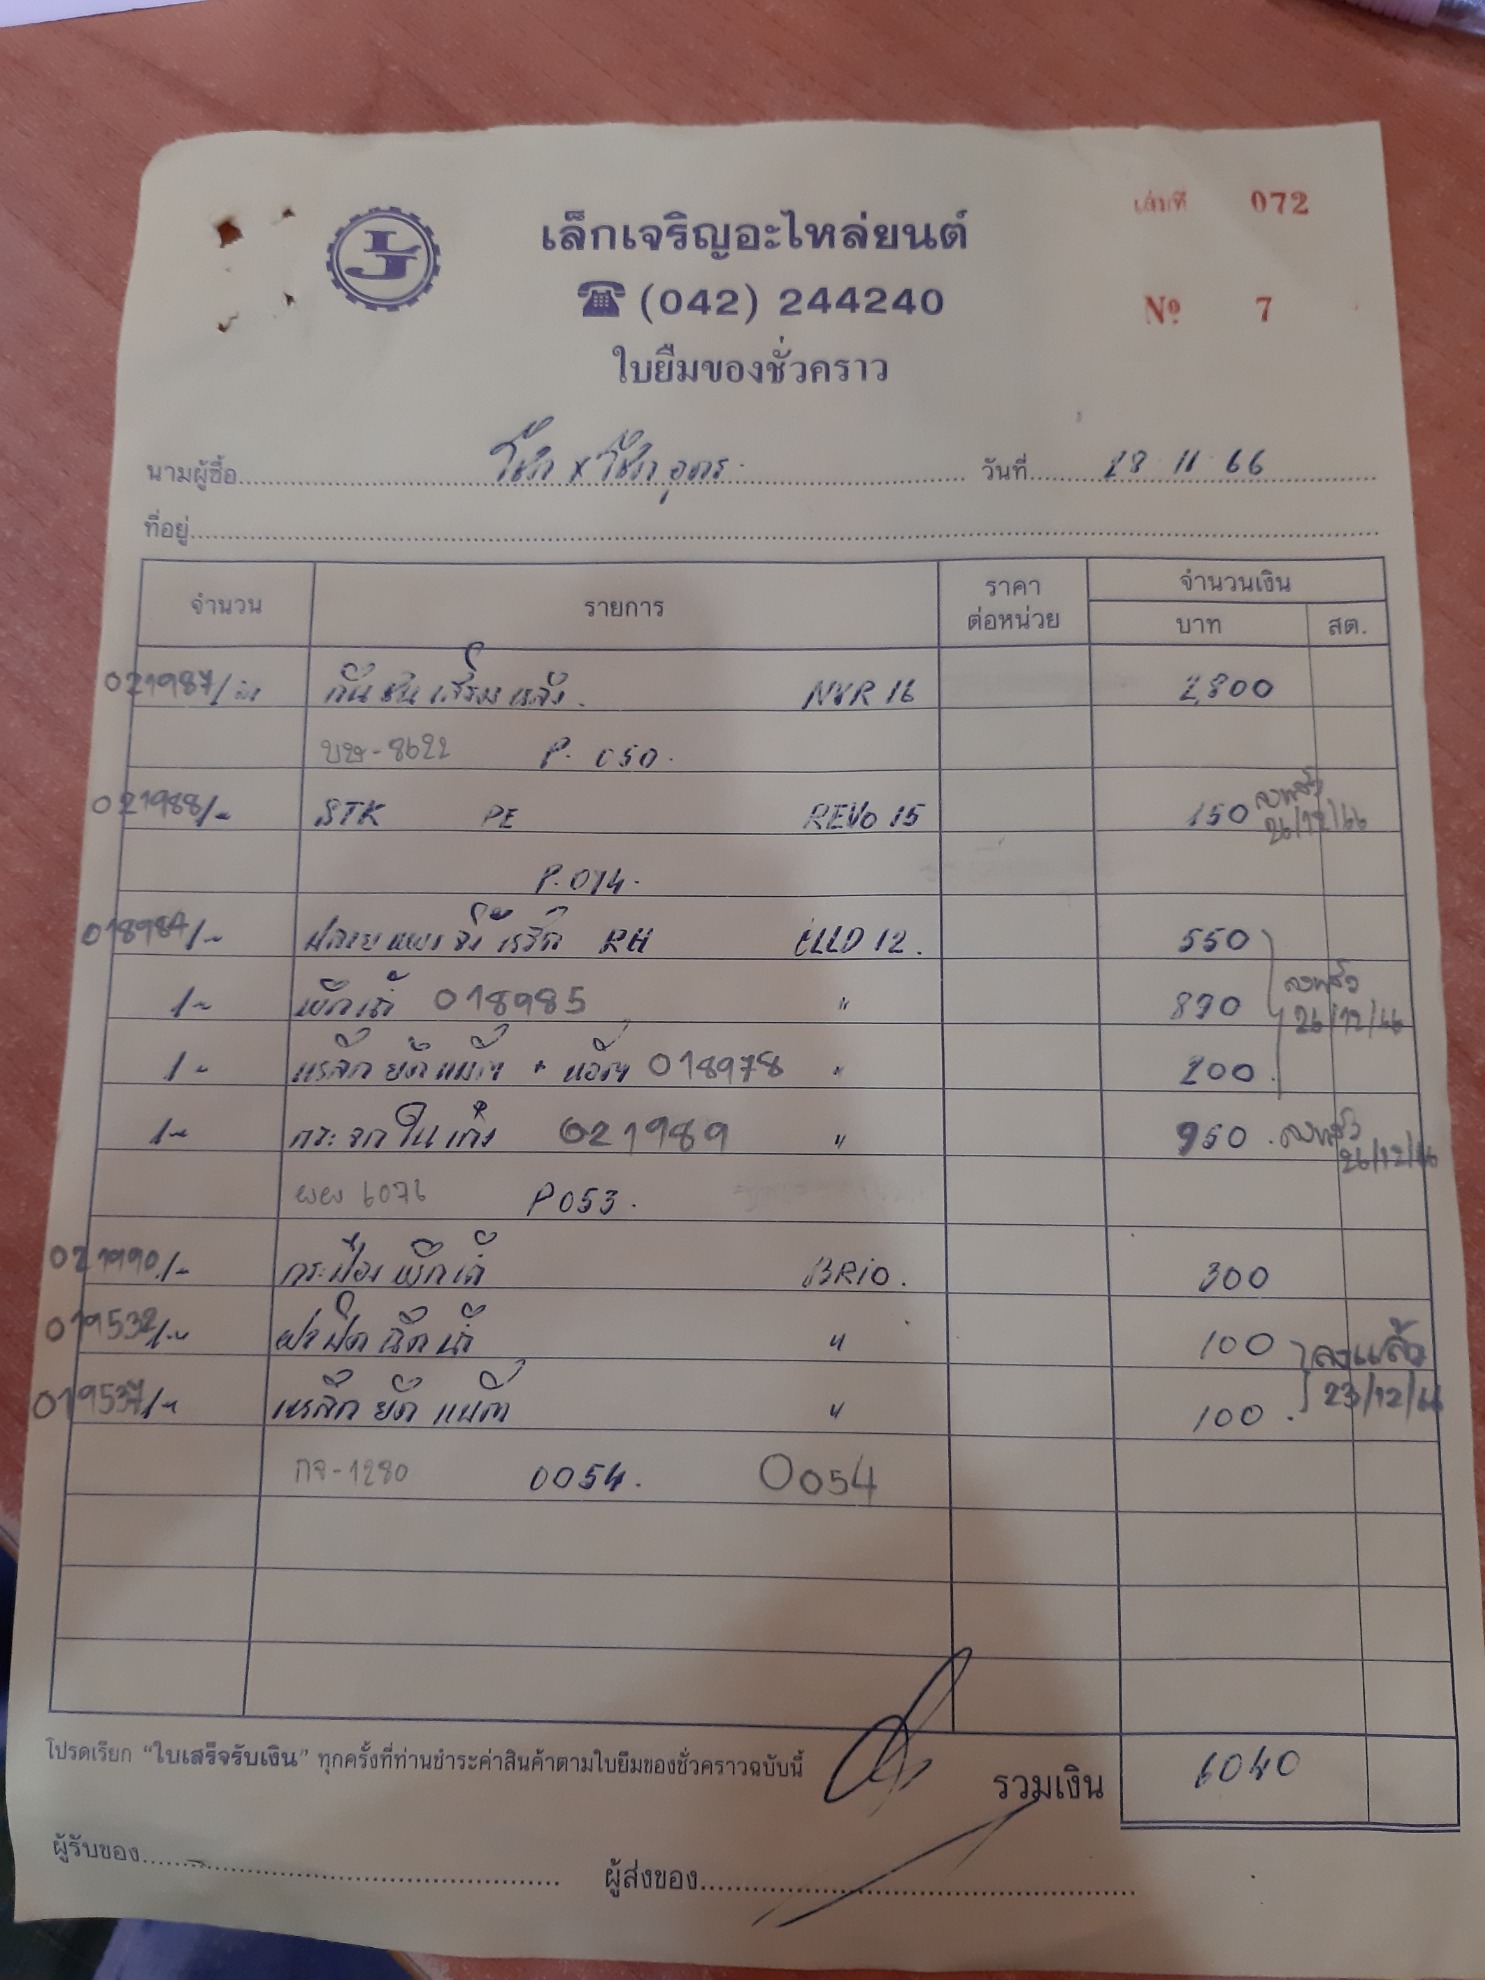 เล่มที่ 072
เล็กเจริญอะไหล่ยนต์
(042) 244240
Nº 7
ใบยืมของชั่วคราว
นามผู้ซื้อ โชค x โชค อุดร วันที่ 28 11 66
ที่อยู่
จำนวน รายการ ราคาต่อหน่วย จำนวนเงิน บาท สต.
021987/ กันชนเสริมหลัง NVR 16 2,800
บษ-8622 P. 050.
021988/~ STK PE REVO 15 150 ลงแล้ว 26/12/66
P.014.
018984/~ RH 12. 550
1~ 018985 " 890 ลงแล้ว 26/12/66
1~ เหล็กยึดแบต + 018978 " 200.
1~ กระจกในเก๋ง 021989 " 950. ลงแล้ว 26/12/66
6076 P053.
021990/~ BRIO. 300
019532/~ ฝาปิดฉีดน้ำ " 100 ลงแล้ว
019537/~ เหล็กยึดแบต " 100. 23/12/66
กจ-1280 0054. 0054
โปรดเรียก “ใบเสร็จรับเงิน” ทุกครั้งที่ท่านชำระค่าสินค้าตามใบยืมของชั่วคราวฉบับนี้
รวมเงิน 6040
ผู้รับของ ผู้ส่งของ